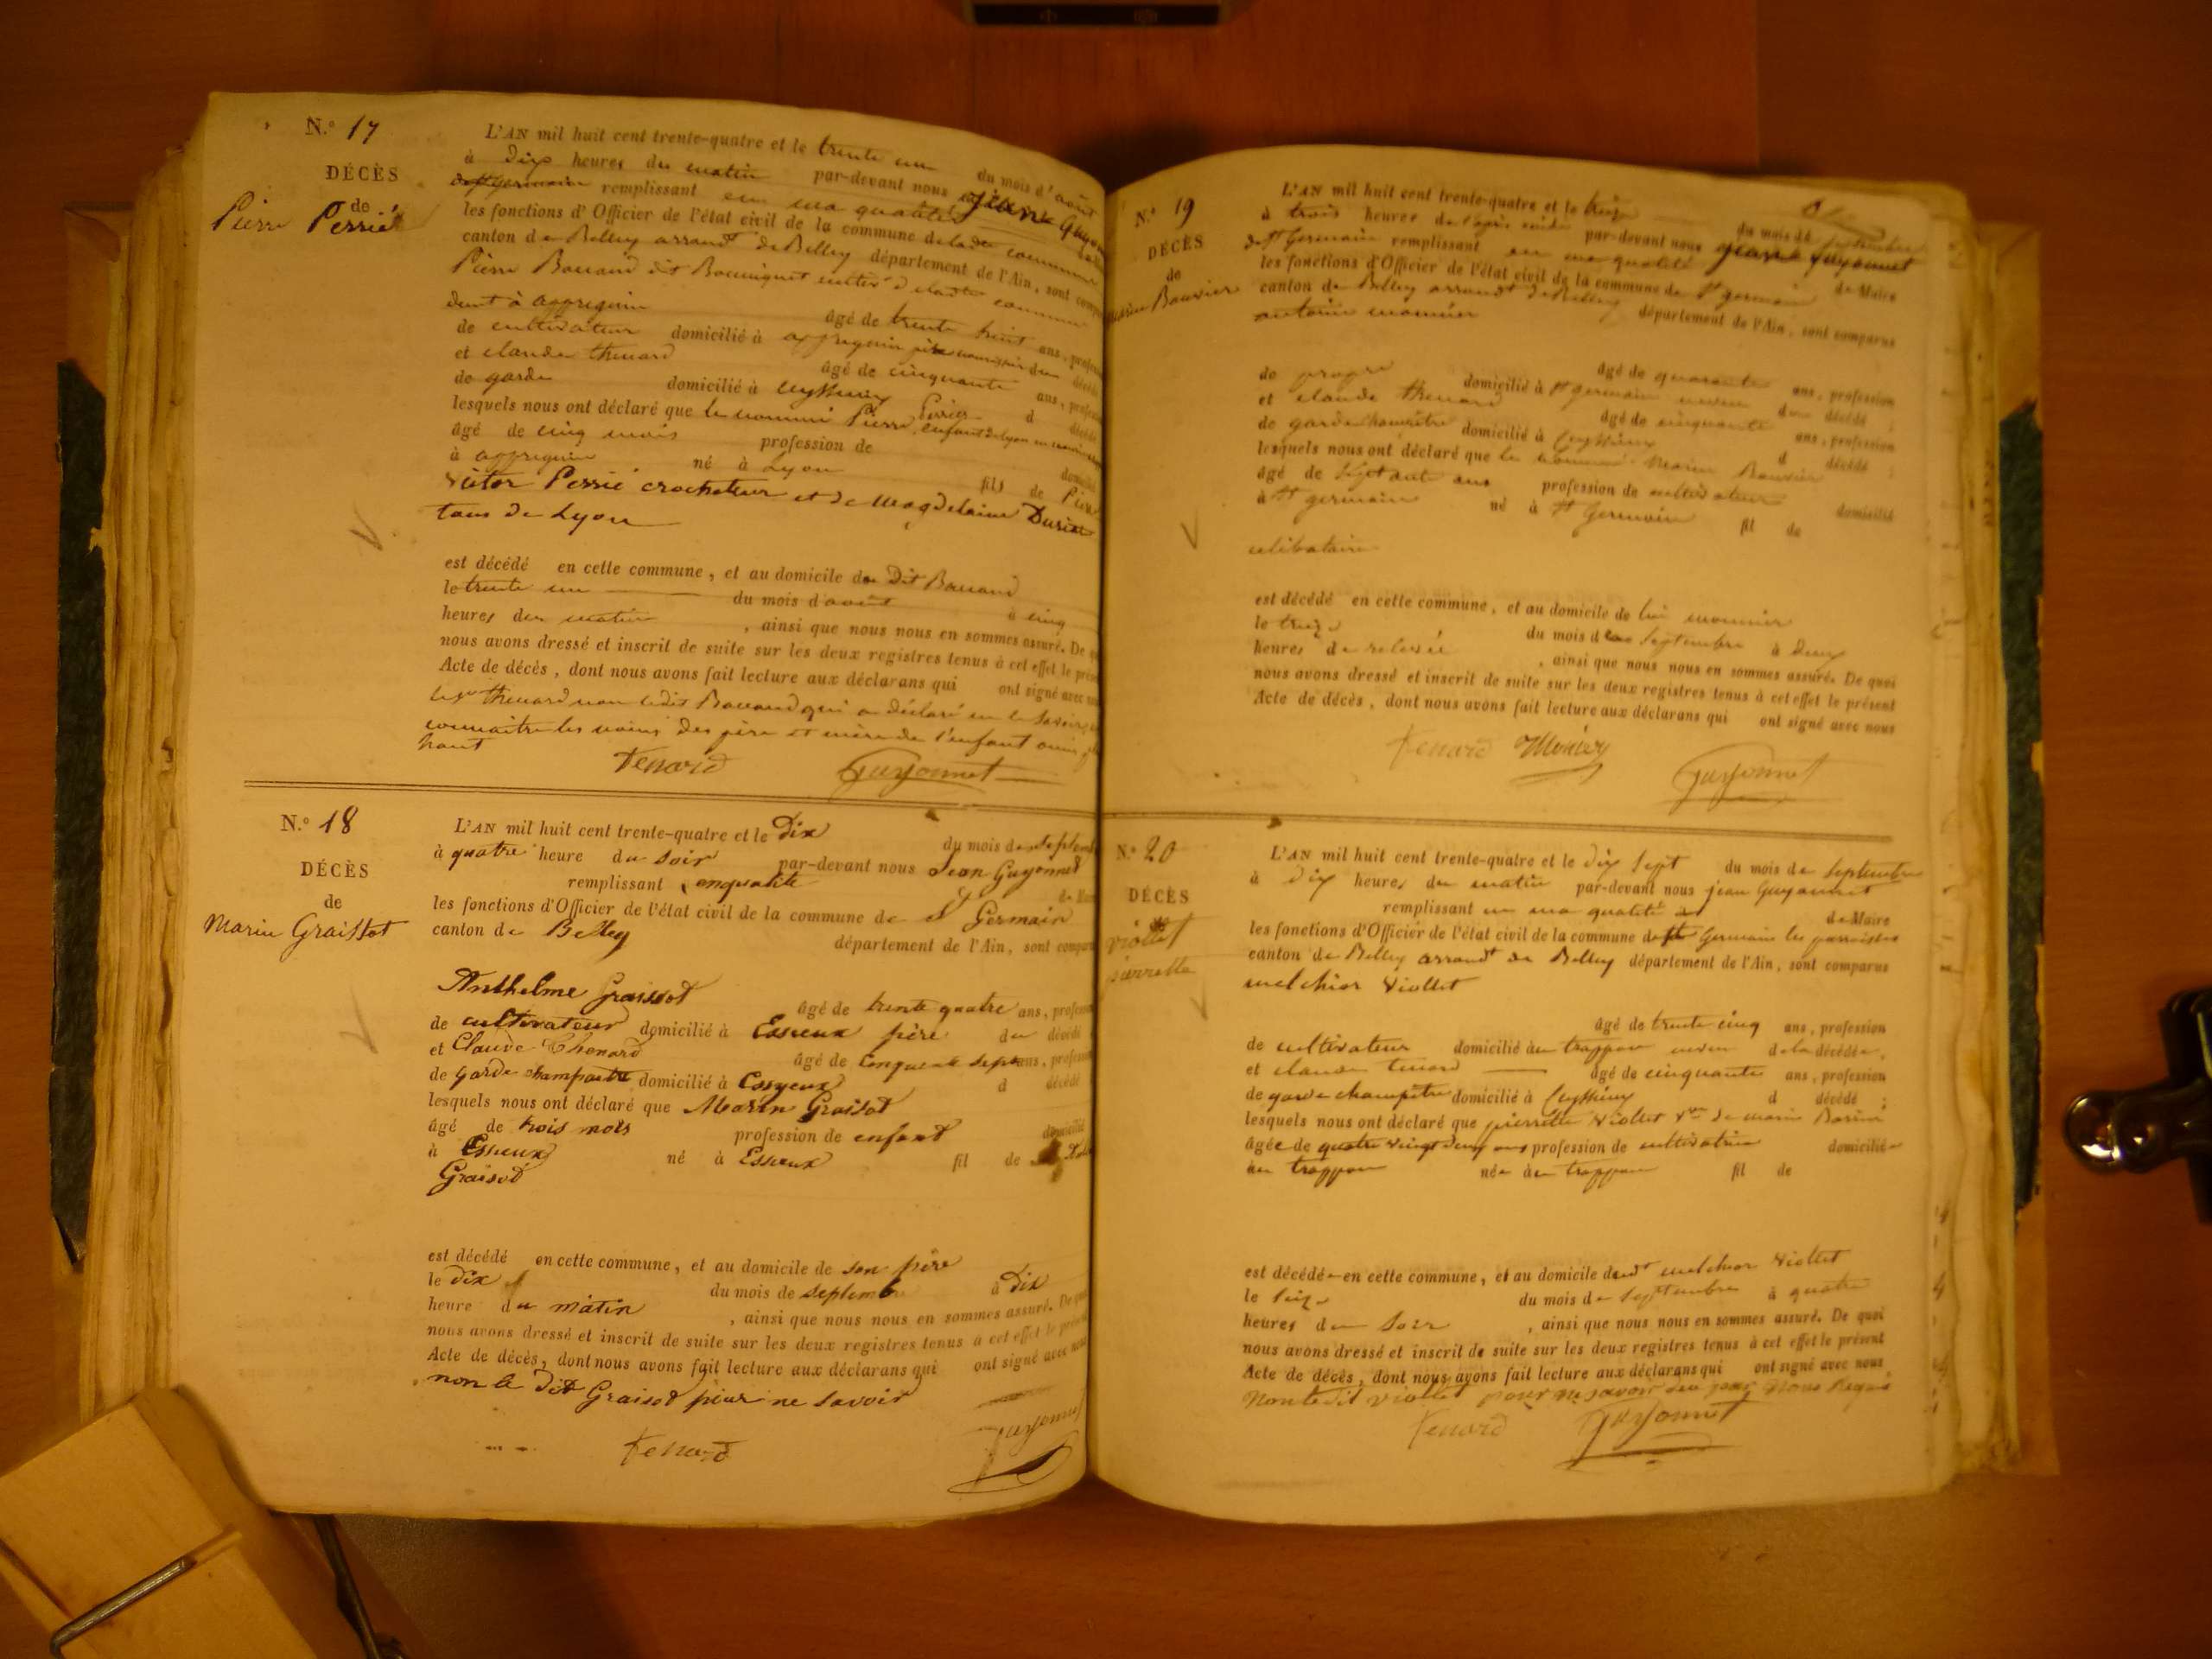 N.° 17
DÉCÈS
de
Pierre Perrié
L'AN mil huit cent trente-quatre et le trente un du mois d'août
à dix heures du matin par-devant nous Jean
de St germain remplissant en ma qualité
les fonctions d'Officier de l'état civil de la commune de commune
canton de Belley arrondt de Belley département de l'Ain, sont
Pierre dit commune
dent à appregnin âgé de trente huit ans,
de cultivateur domicilié à appregnin
et claude thenard âgé de cinquante ans,
de garde domicilié à d décédé
lesquels nous ont déclaré que le nommé Pierre Perrier
âgé de cinq mois profession de
à appregnin né à Lyon fils de
victor Perrié crocheteur et de magdelaine
tous de Lyon
est décédé en cette commune, et au domicile du Dit
le trente un du mois d'août à cinq
heures du matin, ainsi que nous nous en sommes assuré. De
nous avons dressé et inscrit de suite sur les deux registres tenus à cet effet le
Acte de décès, dont nous avons fait lecture aux déclarans qui ont signé avec
thenard non ledit qui a déclaré ne le savoir
connaitre les noms des père et mère de l'enfant
haut
Tenard Guyonnet
N.° 18
DÉCÈS
de
Marin Graissot
L'AN mil huit cent trente-quatre et le Dix du mois de
à quatre heure du soir par-devant nous Jean Guyonnet
remplissant enqualité
les fonctions d'Officier de l'état civil de la commune de St Germain
canton de Belley département de l'Ain, sont
Anthelme Graissot
âgé de trente quatre ans,
de cultivateur domicilié à Essieux père du décédé
et Claude Thenard âgé de ans,
de garde champaitre domicilié à d décédé
lesquels nous ont déclaré que Marin Graisot
âgé de trois mois profession de enfant domicilié
à Essieux né à Essieux fil de
Graisod
est décédé en cette commune, et au domicile de son père
le dix du mois de septembre à dix
heure du matin, ainsi que nous nous en sommes assuré. De
nous avons dressé et inscrit de suite sur les deux registres tenus à cet effet le
Acte de décès, dont nous avons fait lecture aux déclarans qui ont signé avec
non le dit Graisod pour ne savoir
Tenard Guyonnet
N.° 19
DÉCÈS
de
Bouvier
L'AN mil huit cent trente-quatre et le treize du mois de septembre
à trois heures de l'après midi par-devant nous jean guyonnet
de St Germain remplissant en ma qualité de Maire
les fonctions d'Officier de l'état civil de la commune de St germain
canton de Belley arrondt de Belley département de l'Ain, sont comparus
antoine monnier
âgé de quarante ans, profession
de domicilié à St germain du décédé;
et claude thenard âgé de cinquante ans, profession
de garde champêtre domicilié à d décédé:
lesquels nous ont déclaré que le nommé Marin Bouvier
âgé de septante ans profession de cultivateur domicilié
à St germain né à St Germain fil de
celibataire
est décédé en cette commune, et au domicile de lui monnier
le treize du mois de septembre à deux
heures de relevée, ainsi que nous nous en sommes assuré. De quoi
nous avons dressé et inscrit de suite sur les deux registres tenus à cet effet le présent
Acte de décès, dont nous avons fait lecture aux déclarans qui ont signé avec nous
Tenard Monier
Guyonnet
N.° 20
DÉCÈS
viollet
pierrette
L'AN mil huit cent trente-quatre et le dix sept du mois de septembre
à dix heures du matin par-devant nous jean Guyonnet
remplissant en ma qualité de Maire
les fonctions d'Officier de l'état civil de la commune de St Germain les parroisses
canton de Belley arrondt de Belley département de l'Ain, sont comparus
melchior viollet
âgé de trente cinq ans, profession
de cultivateur domicilié au trappon neveu de la décédée,
et claude tenard âgé de cinquante ans, profession
de garde champêtre domicilié à d décédé;
lesquels nous ont déclaré que pierrette viollet vve de marin
âgée de quatre vingt deux ans profession de cultivatrice domiciliée
au trappon née au trappon fil de
est décédée en cette commune, et au domicile dudt melchior viollet
le seize du mois de septembre à quatre
heures du soir, ainsi que nous nous en sommes assuré. De quoi
nous avons dressé et inscrit de suite sur les deux registres tenus à cet effet le présent
Acte de décès, dont nous avons fait lecture aux déclarans qui ont signé avec nous
non le dit viollet pour ne savoir de par nous requis
Tenard Guyonnet